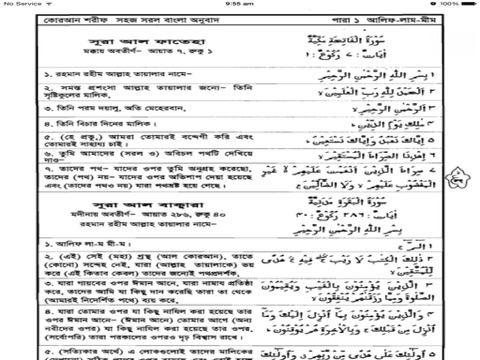 No Service
9:55 am
100%
কোরআন শরীফ সহজ সরল বাংলা অনুবাদ
পারা ১ আলিফ-লাম-মীম
সূরা আল ফাতেহা
মক্কায় অবতীর্ণ- আয়াত ৭, রুকু ১
১. রহমান রহীম আল্লাহ তায়ালার নামে-
২. সমস্ত প্রশংসা আল্লাহ তায়ালার জন্যে- তিনি
সৃষ্টিকুলের মালিক,
৩. তিনি পরম দয়ালু, অতি মেহেরবান,
৪. তিনি বিচার দিনের মালিক।
৫. (হে প্রভু,) আমরা তোমারই বন্দেগী করি এবং
তোমারই সাহায্য চাই।
৬. তুমি আমাদের (সরল ও) অবিচল পথটি দেখিয়ে
দাও-
৭. তাদের পথ- যাদের ওপর তুমি অনুগ্রহ করেছো,
তাদের (পথ) নয়- যাদের ওপর অভিশাপ দেয়া হয়েছে
এবং (তাদের পথও নয়) যারা পথভ্রষ্ট হয়ে গেছে।
سُوْرَةُ الْفَاتِحَةِ مَكِّيَّةٌ
اٰيَاتُ : ٧ رُكُوْعُ : ١
١ بِسْمِ اللّٰهِ الرَّحْمٰنِ الرَّحِيْمِ
٢ اَلْحَمْدُ لِلّٰهِ رَبِّ الْعٰلَمِيْنَ ۙ
٣ الرَّحْمٰنِ الرَّحِيْمِ ۙ
٤ مٰلِكِ يَوْمِ الدِّيْنِ ؕ
٥ اِيَّاكَ نَعْبُدُ وَاِيَّاكَ نَسْتَعِيْنُ ؕ
٦ اِهْدِنَا الصِّرَاطَ الْمُسْتَقِيْمَ ۙ
٧ صِرَاطَ الَّذِيْنَ اَنْعَمْتَ عَلَيْهِمْ ۙ غَيْرِ
الْمَغْضُوْبِ عَلَيْهِمْ وَلَا الضَّآلِّيْنَ
সূরা আল বাক্বারা
মদীনায় অবতীর্ণ- আয়াত ২৮৬, রুকু ৪০
রহমান রহীম আল্লাহ তায়ালার নামে-
১. আলিফ লা-ম মী-ম।
২. (এই) সেই (মহা) গ্রন্থ (আল কোরআন), তাতে
(কোনো) সন্দেহ নেই, যারা (আল্লাহ তায়ালাকে) ভয়
করে (এই কিতাব কেবল) তাদের জন্যেই পথপ্রদর্শক,
৩. যারা গায়বের ওপর ঈমান আনে, যারা নামায প্রতিষ্ঠা
করে, তাদের আমি যা কিছু দান করেছি তারা তা থেকে
(আমারই নির্দেশিত পথে) ব্যয় করে,
৪. যারা তোমার ওপর যা কিছু নাযিল করা হয়েছে তার
ওপর ঈমান আনে- (ঈমান আনে) তোমার আগে (অন্য
নবীদের ওপর) যা কিছু নাযিল করা হয়েছে তার ওপর,
(সর্বোপরি) তারা পরকালের ওপরও দৃঢ় বিশ্বাস রাখে।
৫. (সত্যিকার অর্থে) এ লোকগুলোই তাদের মালিকের
سُوْرَةُ الْبَقَرَةِ مَدَنِيَّةٌ
اٰيَاتُ : ٢٨٦ رُكُوْعُ : ٤٠
بِسْمِ اللّٰهِ الرَّحْمٰنِ الرَّحِيْمِ
١ الٓمّٓ ۚ
٢ ذٰلِكَ الْكِتٰبُ لَا رَيْبَ ۛ فِيْهِ ۛ هُدًى
لِّلْمُتَّقِيْنَ ۙ
٣ الَّذِيْنَ يُؤْمِنُوْنَ بِالْغَيْبِ وَيُقِيْمُوْنَ
الصَّلٰوةَ وَمِمَّا رَزَقْنٰهُمْ يُنْفِقُوْنَ ۙ
٤ وَالَّذِيْنَ يُؤْمِنُوْنَ بِمَآ اُنْزِلَ اِلَيْكَ وَمَآ
اُنْزِلَ مِنْ قَبْلِكَ ۚ وَبِالْاٰخِرَةِ هُمْ يُوْقِنُوْنَ ؕ
٥ اُولٰٓئِكَ عَلٰى هُدًى مِّنْ رَّبِّهِمْ ۙ وَاُولٰٓئِكَ